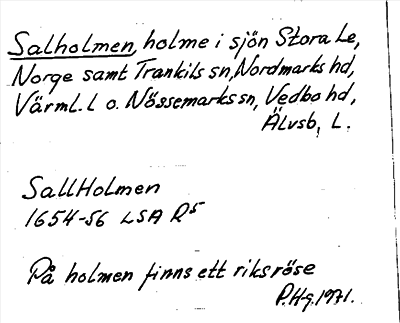 Salholmen, holme i sjön Stora Le,
Norge samt Trankils sn, Nordmarks hd,
Värml. l o. Nössemarks sn, Vedbo hd,
Älvsb. L.
SallHolmen
1654-56 LSA R5
På holmen finns ett riksröse
P.Hg. 1971.